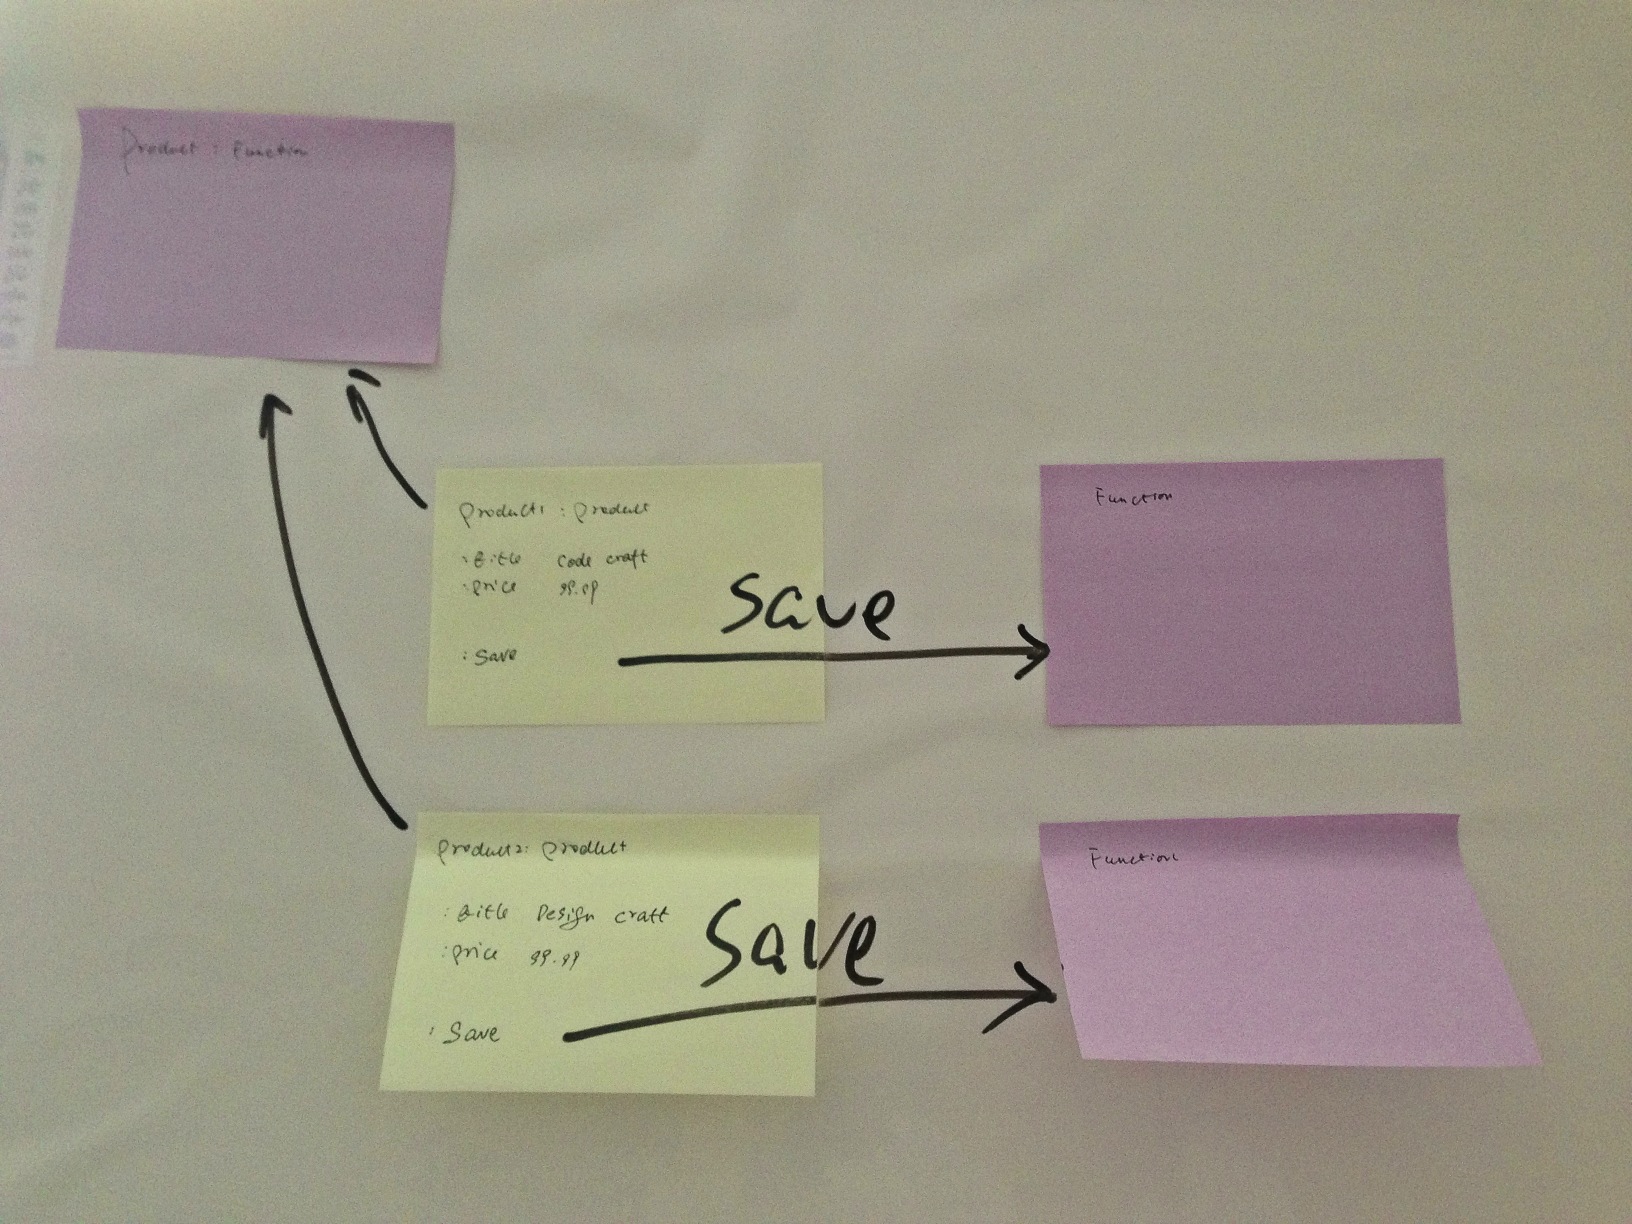 Product : Function
Product1 : Product
: title Code craft
: price 99.99
: Save
Save
Function
Product2 : Product
: title Design craft
: price 99.99
: Save
Save
Function